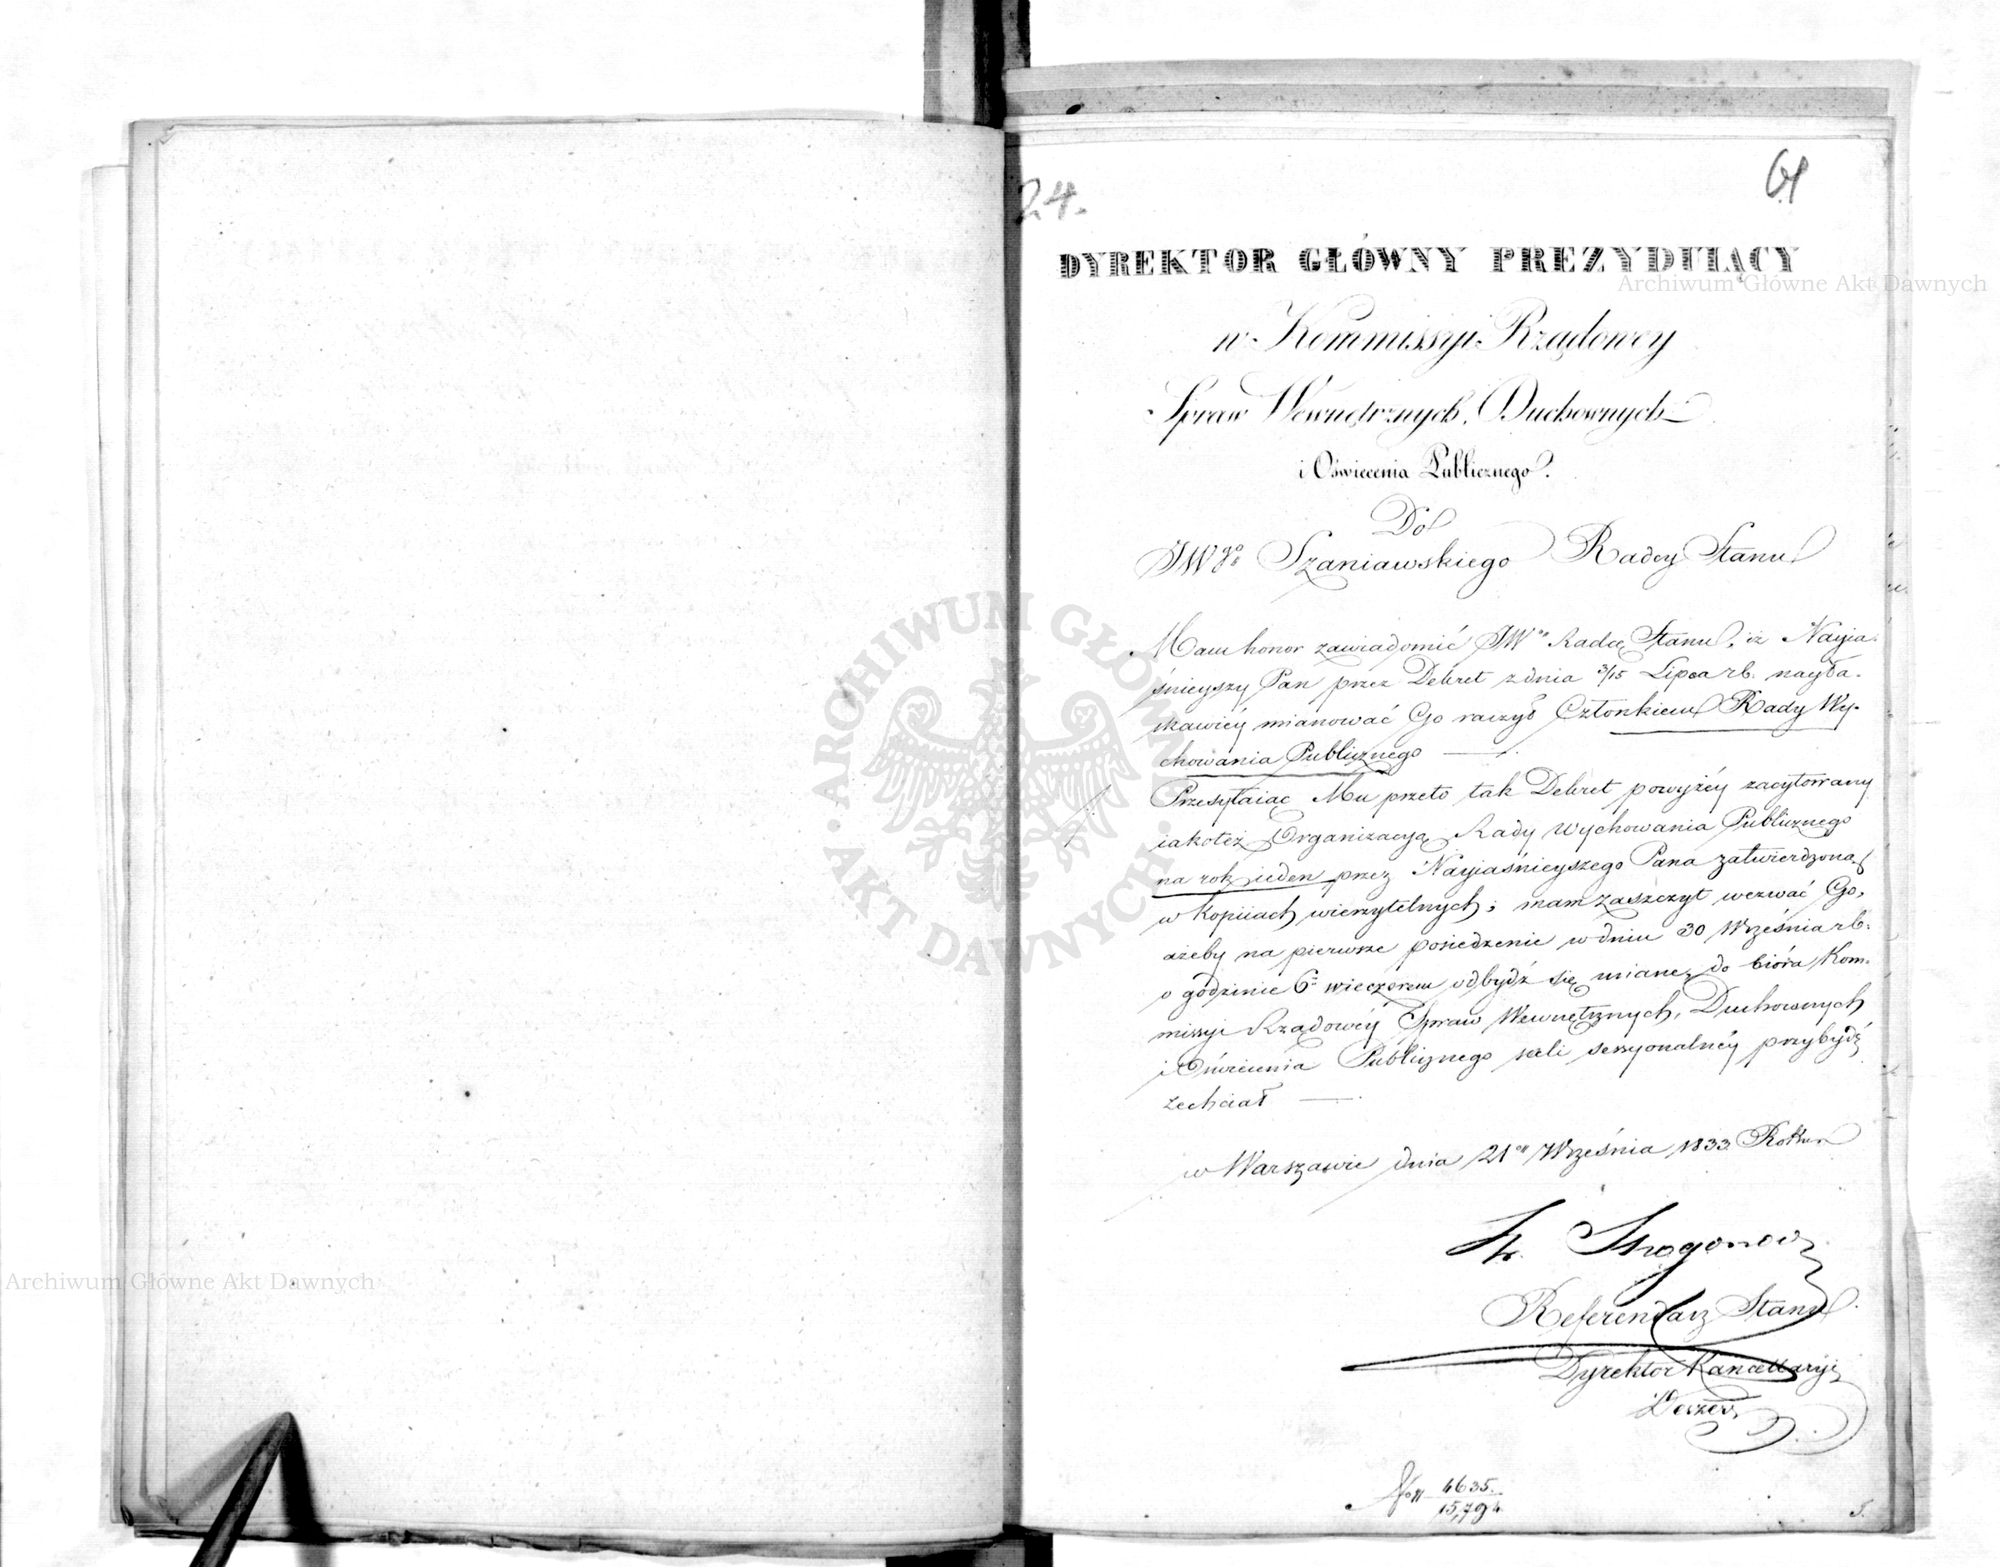 24.
61
DYREKTOR GŁÓWNY PREZYDUIĄCY
w Kommissyi Rządowey
Spraw Wewnętrznych, Duchownych
i Oświecenia Publicznego.
Do
JWgo Szaniawskiego Radcy Stanu
Mam honor zawiadomić JWo Radcę Stanu, iż Nayia-
śnieyszy Pan przez Dekret z dnia 3/15 Lipca rb. nayła-
skawiéy mianować Go raczył Członkiem Rady Wy-
chowania Publicznego
Przesyłaiąc Mu przeto tak Dekret powyżéy zacytowany
iakoteż Organizacyą Rady Wychowania Publicznego
na rok ieden przez Nayiaśnieyszego Pana zatwierdzoną
w kopiiach wierzytelnych; mam zaszczyt wezwać Go,
ażeby na pierwsze posiedzenie w dniu 30 Września rb.
o godzinie 6. wieczorem odbydź się maiące, do bióra Kom-
missyi Rządowéy Spraw Wewnętrznych, Duchownych
i Oświecenia Publicznego sali sessyonalnéy przybydź
zechciał
w Warszawie dnia 21 Września 1833 Roku
Str. Strogonow
Referendarz Stanu
Dyrektor Kancellaryi
No 4635.
15,794
5.
Archiwum Główne Akt Dawnych
ARCHIWUM GŁÓWNE · AKT DAWNYCH ·
Archiwum Główne Akt Dawnych